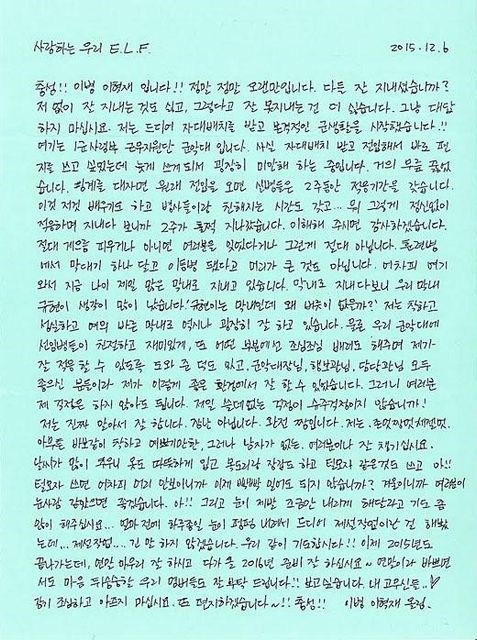 사랑하는 우리 E.L.F. 2015.12.6
충성!! 이병 이혁재 입니다!! 정말 정말 오랜만입니다. 다들 잘 지내셨습니까?
저 없이 잘 지내는 것도 싫고, 그렇다고 잘 못지내는 건 더 싫습니다. 그냥 대답
하지 마십시요. 저는 드디어 자대배치를 받고 본격적인 군생활을 시작했습니다!!
여기는 1군사령부 근무지원단 군악대 입니다. 사실 자대배치 받고 전입해서 바로 편
지를 쓰고 싶었는데 늦게 쓰게되서 굉장히 미안해 하는 중입니다. 거의 무릎 꿇었
습니다. 핑계를 대자면 원래 전입을 오면 신병들은 2주동안 적응기간을 갖습니다.
이것 저것 배우기도 하고 병사들이랑 친해지는 시간도 갖고... 뭐 그렇게 정신없이
적응하며 지내다 보니까 2주가 훌쩍 지나갔습니다. 이해해 주시면 감사하겠습니다.
절대 게으름 피우거나 아니면 여러분을 잊었다거나 그런게 절대 아닙니다. 훈련병
에서 막대기 하나 달고 이등병 됐다고 머리가 큰 것도 아닙니다. 어차피 여기
와서 지금 나이 제일 많은 막내로 지내고 있습니다. 막내로 지내다보니 우리 막내
규현이 생각이 많이 났습니다. '규현이는 막내인데 왜 버릇이 없을까?' 저는 착하고
성실하고 예의 바른 막내로 역시나 굉장히 잘 하고 있습니다. 물론 우리 군악대에
선임병들이 친절하고 재미있게, 또 어떤 부분에선 조심조심 배려도 해주며 제가
잘 적응 할 수 있도록 도와 준 덕도 있고, 군악대장님, 행보관님, 담당관님 모두
좋으신 분들이라 제가 이렇게 좋은 환경에서 잘 할 수 있었습니다. 그러니 여러분
제 걱정은 하지 않아도 됩니다. 제일 쓸데없는 걱정이 슈주걱정이지 않습니까!
저는 진짜 알아서 잘 합니다. 겁나 아닙니다. 완전 짱입니다. 저는.
아무튼 바보같이 착하고 예쁘기만한, 그러나 남자가 없는. 여러분이나 잘 챙기십시요.
날씨가 많이 추우니 옷도 따뜻하게 입고 목도리랑 장갑도 하고 털모자 같은것도 쓰고 아!!
털모자 쓰면 어차피 머리 안보이니까 이제 빡빡 밀어도 되지 않습니까? 겨울이니까 여러분이
눈사람 같았으면 좋겠습니다. 아!! 그리고 눈이 제발 조금만 내리게 해달라고 기도 좀
많이 해주십시요... 얼마 전에 하루종일 눈이 펑펑 내려서 드디어 제설작업이란 걸 해봤
는데... 제설작업.... 긴 말 하지 않겠습니다. 우리 같이 기도합시다!! 이제 2015년도
끝나가는데, 연말 마무리 잘 하시고 다가 올 2016년 준비 잘 하십시요~ 연말이라 바쁘면
서도 마음 뒤숭숭한 우리 멤버들도 잘 부탁 드립니다!! 보고싶습니다. 내 고우신들..♡
감기 조심하고 아프지 마십시요. 또 편지하겠습니다~!! 충성!! 이병 이혁재 올림.